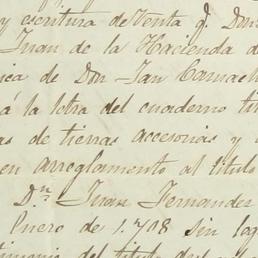 y escritura de Venta q. Don
Juan de la Hacienda d
ica de Don Jan Camach
á la lotra del cuaderno tit
as de tierras accesorias y
en arreglamento al titulo
D.n Juan Fernandez
Enero de 1.708 sin log
del titulo